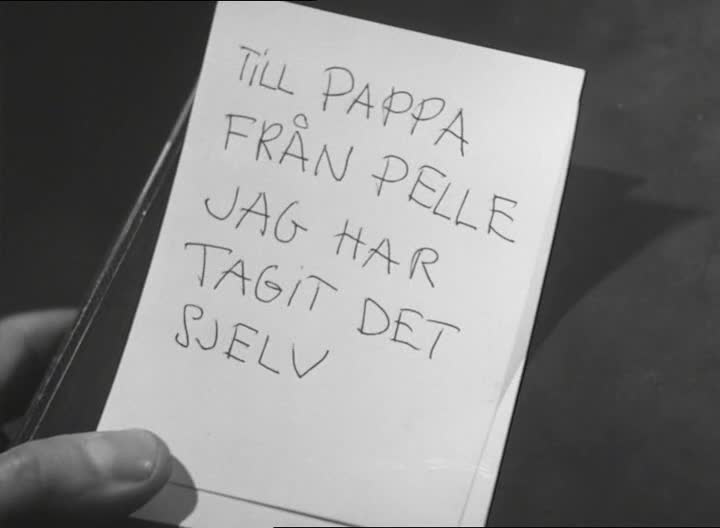 TiLL PAPPA
FRÅN PELLE
JAG HAR
TAGiT DET
SJELV